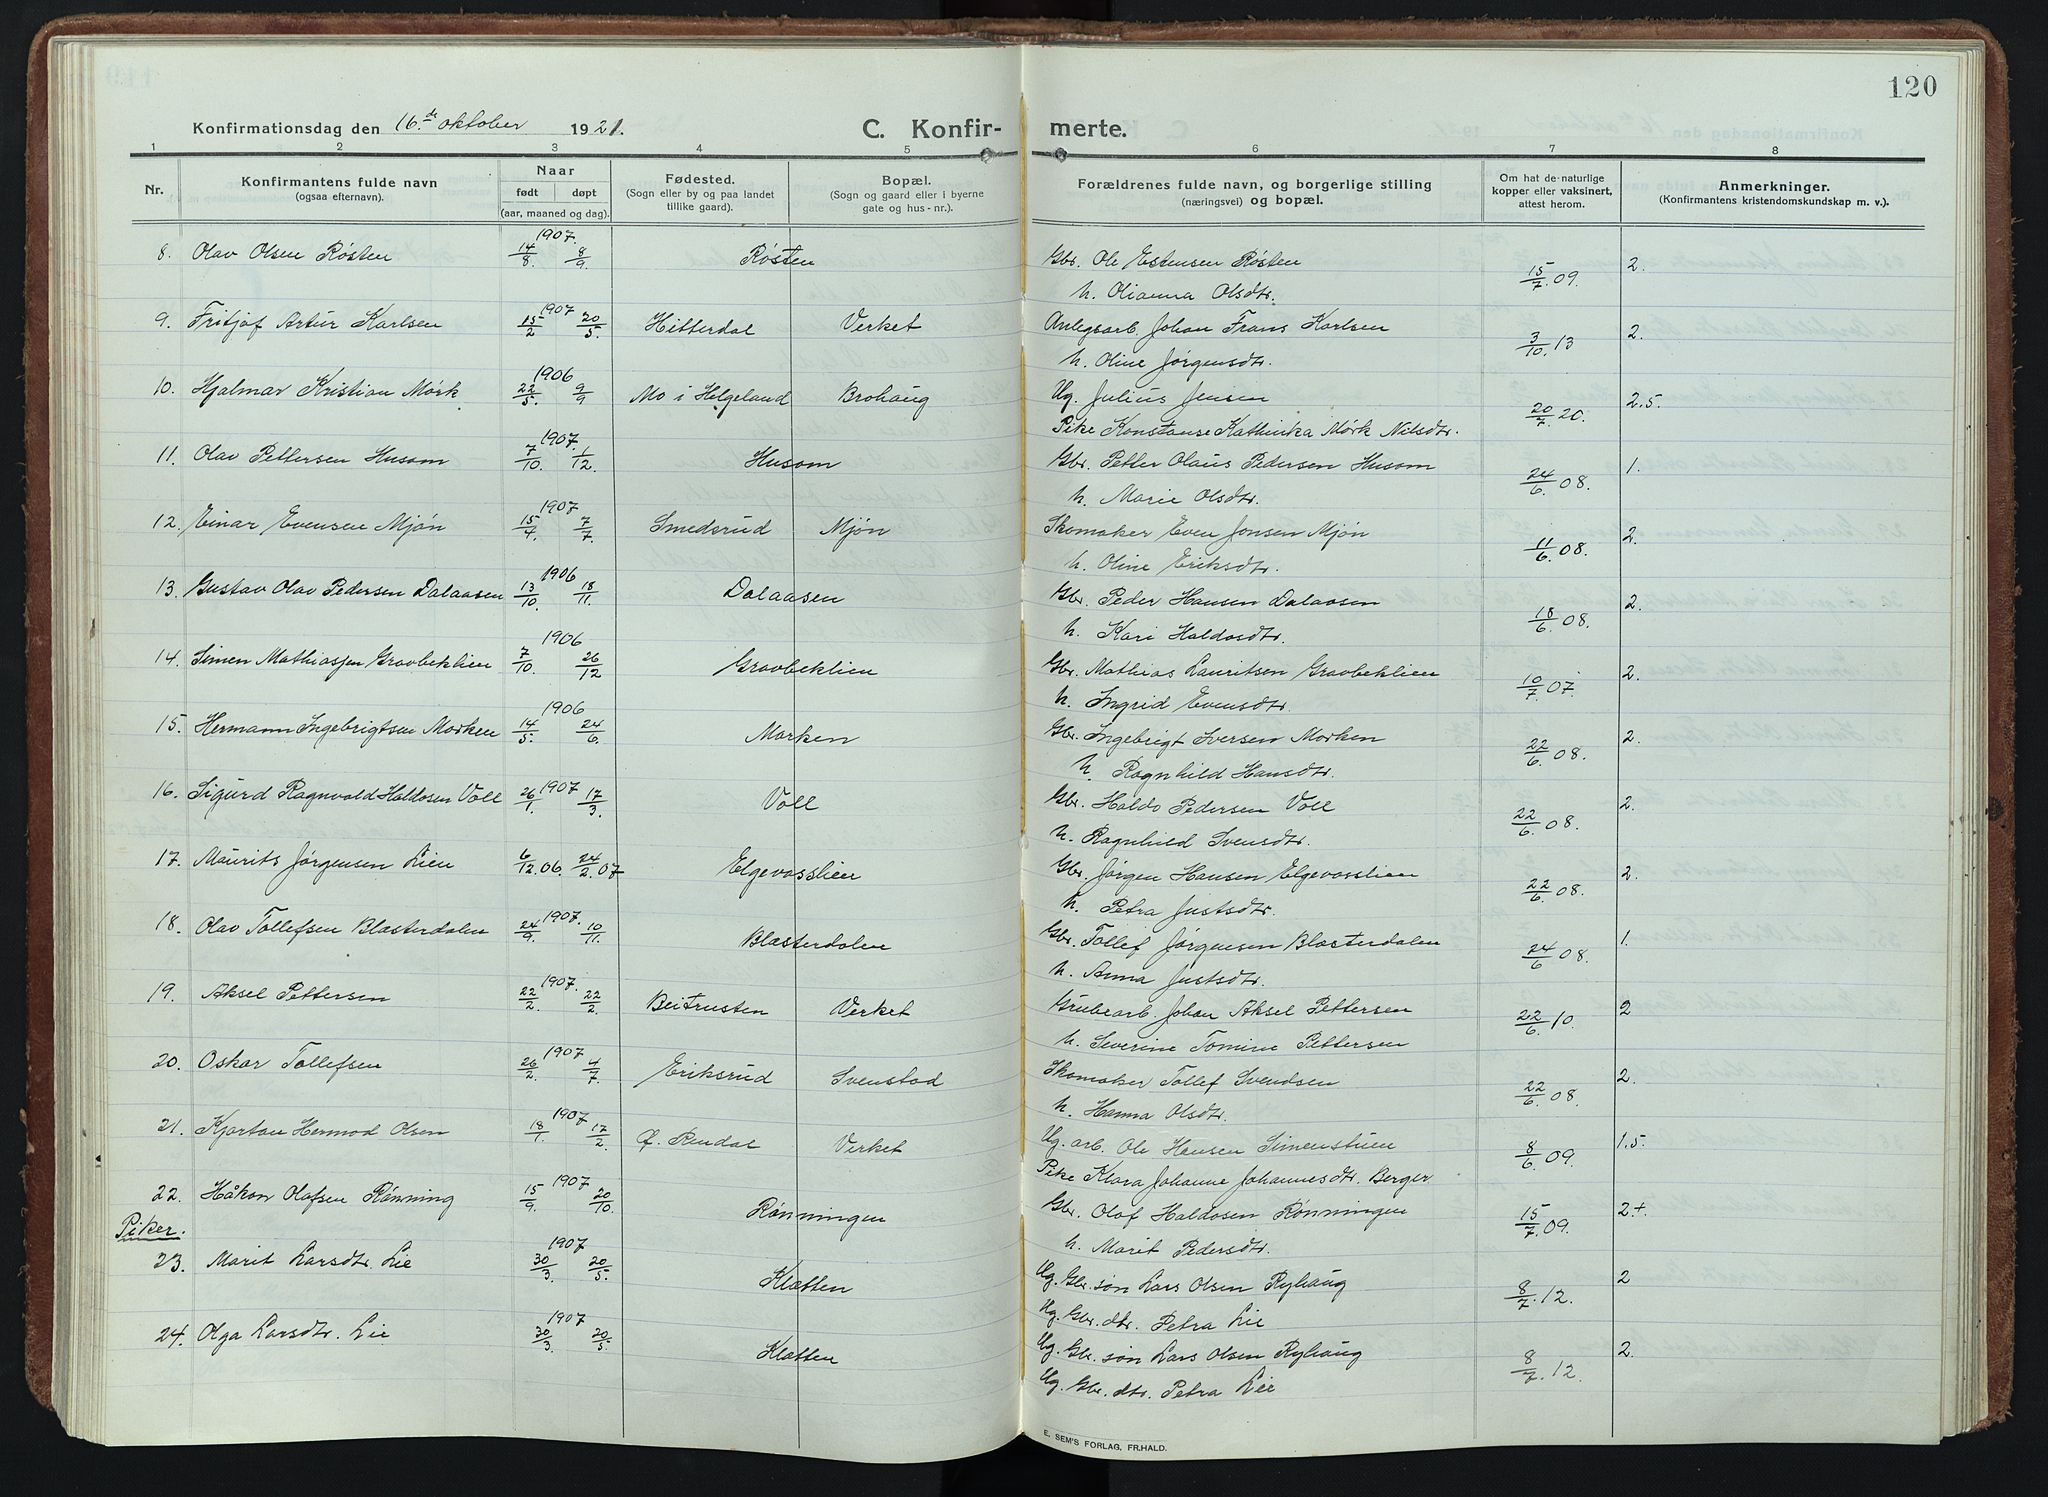 120
Konfirmationsdag den 16.de oktober 1921.
C. Konfir- merte.
1 2 3 4 5 6 7 8
Nr.
Konfirmantens fulde navn
(ogsaa efternavn).
Naar
født døpt
(aar, maaned og dag).
Fødested.
(Sogn eller by og paa landet
tillike gaard).
Bopæl.
(Sogn og gaard eller i byerne
gate og hus-nr.).
Forældrenes fulde navn, og borgerlige stilling
(næringsvei) og bopæl.
Om hat de naturlige
kopper eller vaksinert,
attest herom.
Anmerkninger.
(Konfirmantens kristendomskundskap m. v.).
8. Olav Olsen Røsten 1907. 14/8. 8/9. Røsten Gbr. Ole Estensen Røsten 15/7.09. 2.
h. Olianna Olsdtr.
9. Fritjof Artur Karlsen 1907 15/2 20/5. Hitterdal Verket Anlegsarb. Johan Frans Karlsen 3/10.13 2.
h. Oline Jørgensdtr.
10. Hjalmar Kristian Mørk 1906 22/5. 9/9 Mo i Helgeland Brohaug Ug. Julius Jensen 20/7.20. 2,5.
Pike Konstanse Kathinka Mørk Nilsdtr.
11. Olav Pettersen Husom 1907. 7/10. 1/12. Husom Gbr. Petter Olaus Pedersen Husom 24/6.08. 1.
h. Marie Olsdtr.
12. Einar Evensen Mjøn 1907 15/4. 7/7. Smedsrud Mjøn Skomaker Even Jonsen Mjøn 11/6.08. 2.
h. Oline Eriksdtr.
13. Gustav Olav Pedersen Dalaasen 1906 13/10. 18/11. Dalaasen Gbr. Peder Hansen Dalaasen 18/6.08. 2.
h. Kari Haldosdtr.
14. Simen Mathiassen Gravbeklien 1906 7/10. 26/12 Gravbeklien Gbr. Mathias Lauritsen Gravbeklien 10/7 07. 2.
h. Ingrid Evensdtr.
15. Hermann Ingebrigtsen Morken 1906 14/5. 24/6. Morken Gbr. Ingebrigt Iversen Morken 22/6.08. 2.
h. Ragnhild Hansdtr.
16. Sigurd Ragnvald Haldosen Voll 1907 26/1. 17/3. Voll Gbr. Haldo Pedersen Voll 22/6.08. 2.
h. Ragnhild Svensdtr.
17. Maurits Jørgensen Lien 6/12.06. 24/2.07 Elgevasslien Gbr. Jørgen Hansen Elgevasslien 22/6.08. 2.
h. Petra Justsdtr.
18. Olav Tollefsen Blæsterdalen 1907. 24/9. 10/11. Blæsterdalen Gbr. Tollef Jørgensen Blæsterdalen 24/6 08. 1.
h. Anna Justsdtr.
19. Aksel Pettersen 1907. 22/2. 22/2. Beitrusten Verket Grubearb. Johan Aksel Pettersen 22/6.10. 2
h. Severine Tomine Pettersen
20. Oskar Tollefsen 1907 26/2. 4/7. Eriksrud Svenstad Skomaker Tollef Svendsen 22/6.08. 2.
h. Hanna Olsdtr.
21. Kjartan Hermod Olsen 1907 18/1. 17/2. Ø. Rendal Verket Ug. arb. Ole Hansen Simenstuen 8/6.09. 1,5.
Pike Klara Johanne Johannesdtr. Berger
22. Håkon Olafsen Rønning 1907 15/9. 20/10. Rønningen Gbr. Olaf Haldosen Rønningen 15/7.09. 2+.
h. Marit Pedersdtr.
Piker.
23. Marit Larsdtr. Lie 1907 30/3. 20/5. Klætten Ug. Gbr. søn Lars Olsen Ryhaug 8/7.12. 2
Ug. Gbr. dtr. Petra Lie
24. Olga Larsdtr. Lie 1907 30/3. 20/5. Klætten Ug. Gbr. søn Lars Olsen Ryhaug 8/7.12. 2.
Ug. Gbr. dtr. Petra Lie
E. SEM'S FORLAG, FR.HALD.